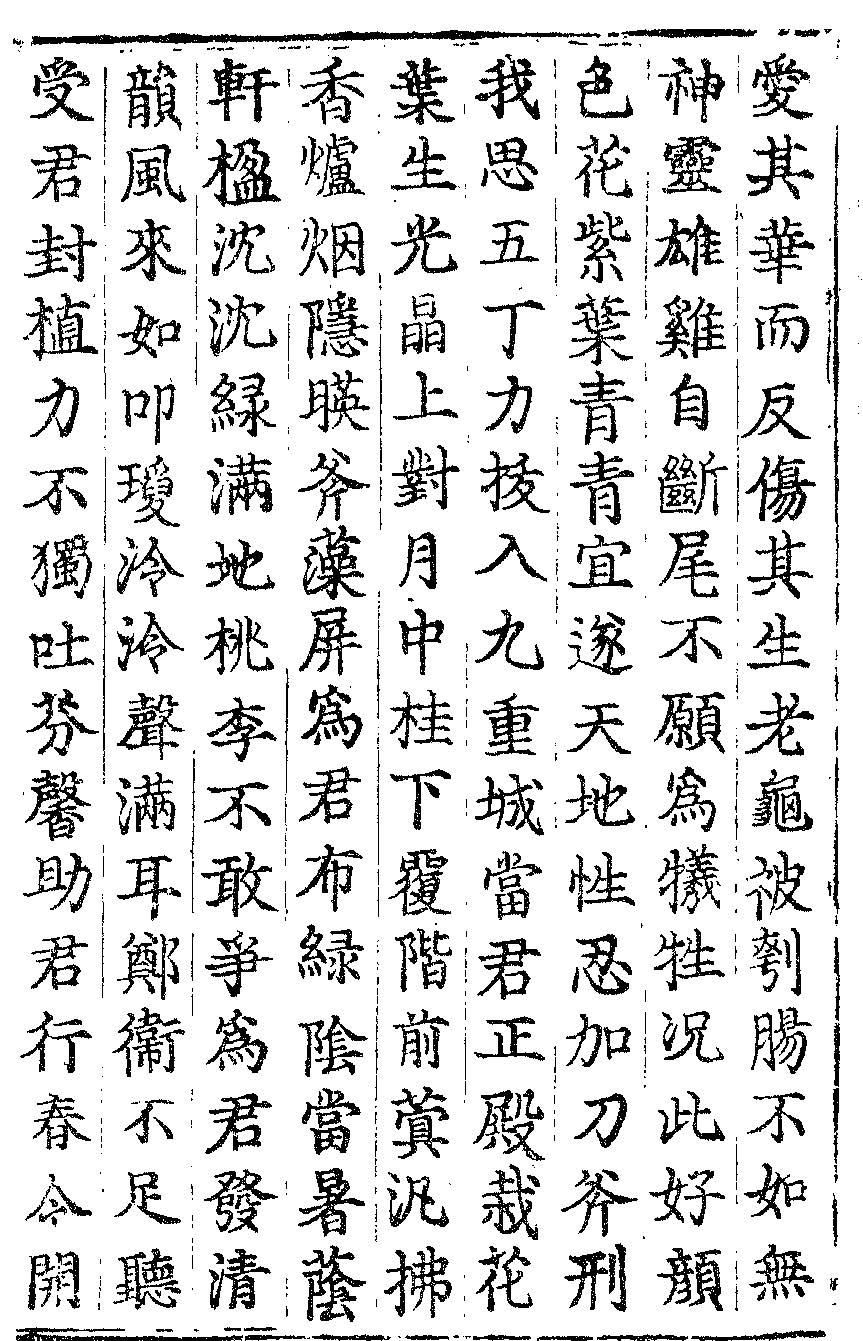 愛其華而反傷其生老龜被刳腸不如無
神靈雄雞自斷尾不願爲犧牲况此好顔
色花紫葉青青宜遂天地性忍加刀斧刑
我思五丁力拔入九重城當君正殿栽花
葉生光晶上對月中桂下覆階前蓂汎拂
香爐烟隱暎斧藻屏爲君布緑陰當暑蔭
軒楹沈沈緑满地桃李不敢爭爲君發清
韻風來如叩瓊泠泠聲满耳鄭衞不足聽
受君封植力不獨吐芬馨助君行春令開